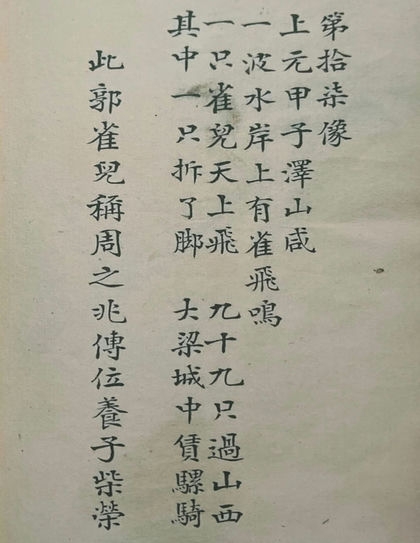 第拾柒像
上元甲子澤山咸
一波水岸上有雀飛鳴
一只雀兒天上飛 九十九只過山西
其中一只拆了脚 大梁城中賃騾騎
此郭雀兒稱周之兆傳位養子柴榮